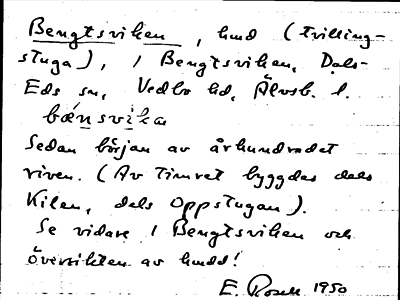 Bengtsviken, hmd (tvilling-
stuga), i Bengtsviken, Dals-
Eds sn, Vedbo hd, Älvsb. l.
bæ̀nsvika
Sedan början av århundradet
riven. (Av timret byggdes dels
Kilen, dels Oppstugan).
Se vidare i Bengtsviken och
översikten av hmd!
E. Rosell 1950